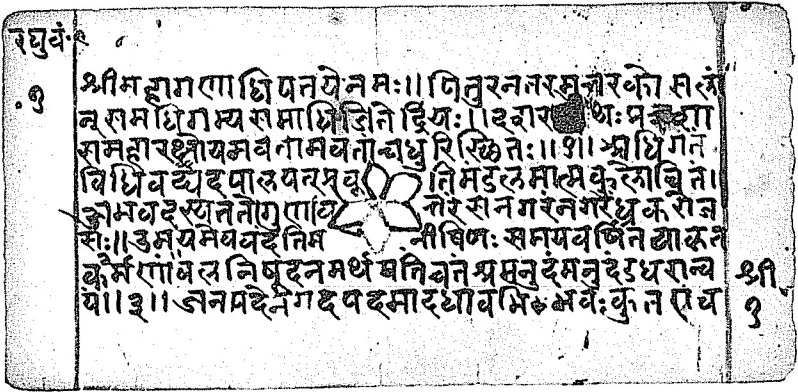 रघुवं॰ ९
१
श्रीमहागणाधिपतयेनमः।। पितुरनंतरमुत्तरकोसलां
न् समधिगम्यसमाधिजितेंद्रियः।। दशर थः प्र शा
समहारथोयमवतामवतांचधुरिस्छितः।।१।। अधिगतं
विधिवद्यदपालयत्प्रकृ तिमंडलमात्मकुलोचितं।
अभवदस्यततोगुणव त्तरंसनगरंनगरंध्रकरौज
सः।।उभयमेववदंतिम नीषिणः समयवर्षितयाकृत
कर्मणां।वलनिषूदनमर्थपतिंचतंश्रमनुदंमनुदंडधरान्व
यं।।३।। जनपदेनगदःपदमादधावभिभवःकुतएव
श्री
१